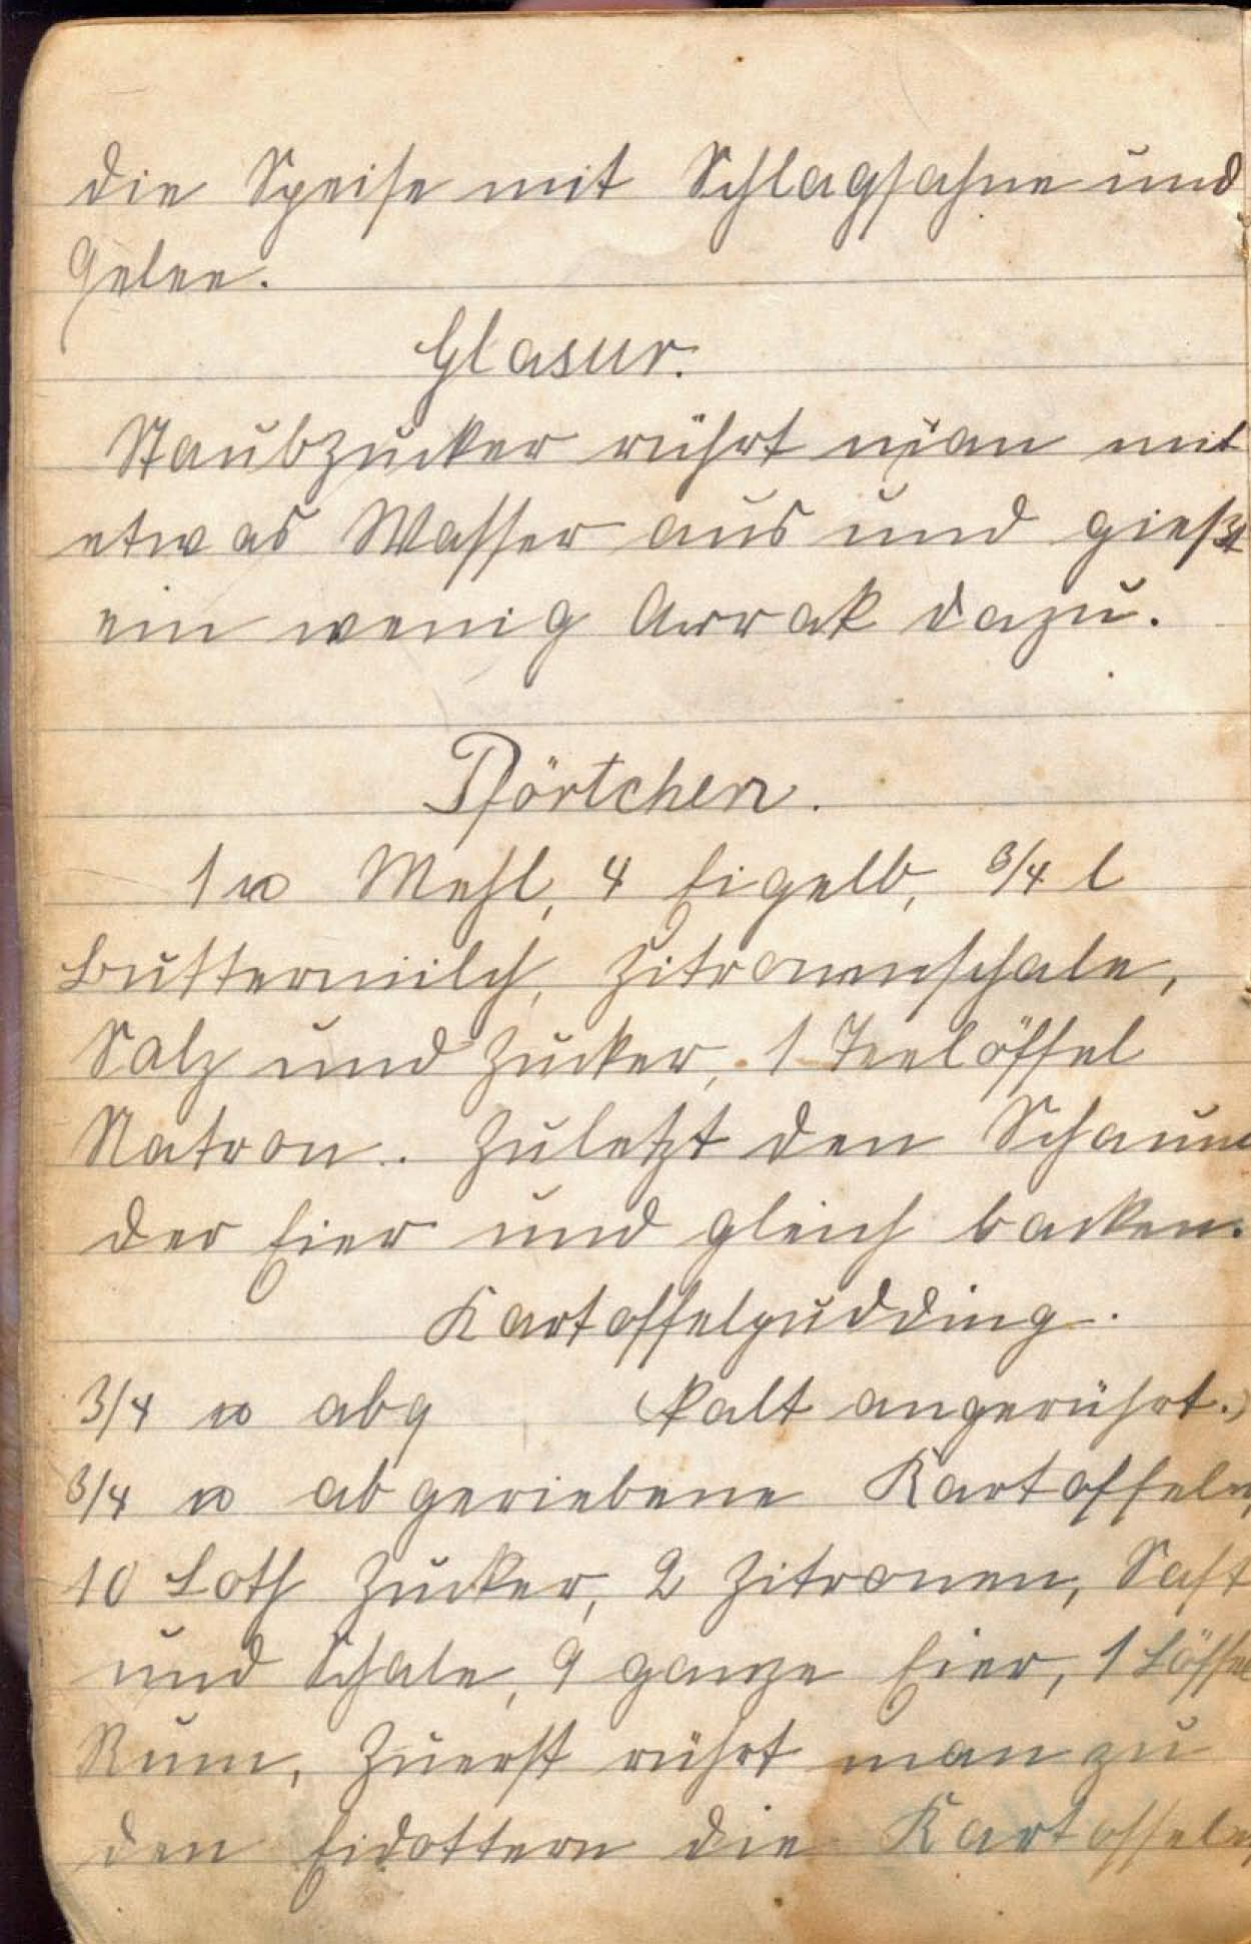 die Speise mit Schlagsahne und
Gelee.
Glasur.
Staubzucker rührt man mit
etwas Wasser aus und gießt
ein wenig Arrak dazu.
Pförtchen.
1 ℔ Mehl, 4 Eigelb, 3/4 l
Buttermilch, Zitronenschale,
Salz und Zucker, 1 Teelöffel
Natron. Zuletzt den Schaum
der Eier und gleich backen.
Kartoffelpudding.
3/4 ℔ abg (kalt angerührt.)
3/4 ℔ abgeriebene Kartoffeln,
10 Loth Zucker, 2 Zitronen, Saft
und Schale, 9 ganze Eier, 1 Löffel
Rum, Zuerst rührt man zu
den Eidottern die Kartoffeln,